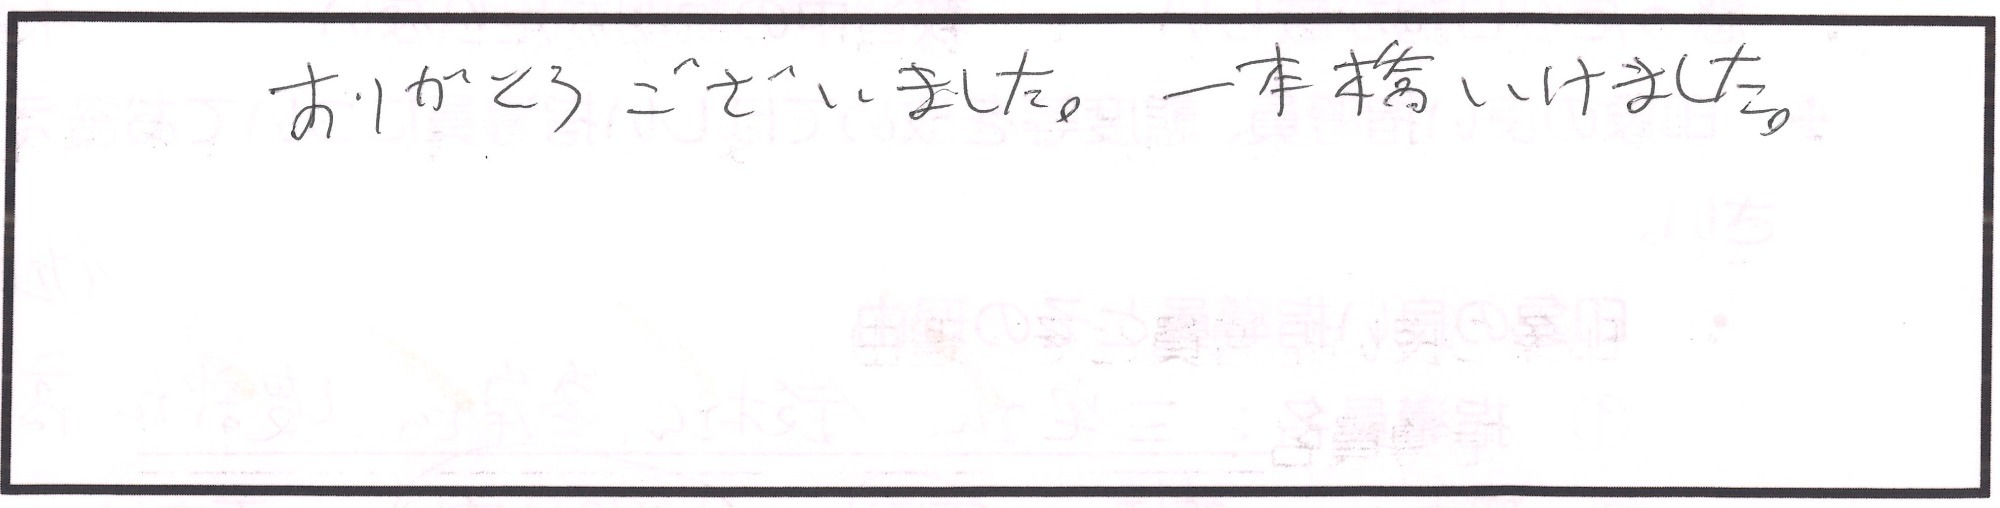 ありがとうございました。一本橋いけました。